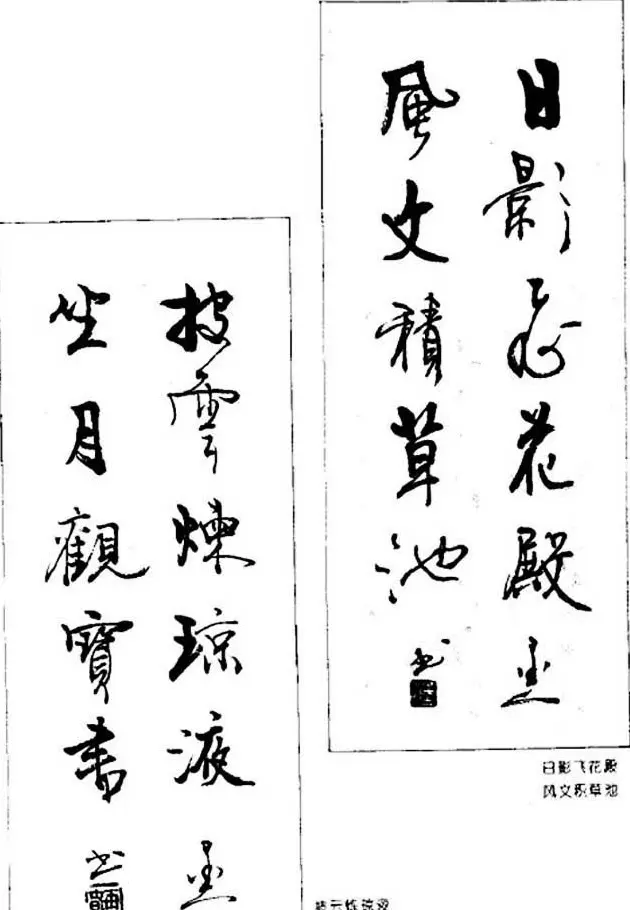 日影飞花殿
風文積草池
日影飞花殿
风文积草池
披雲煉琼液
坐月觀寶書
披云炼琼液